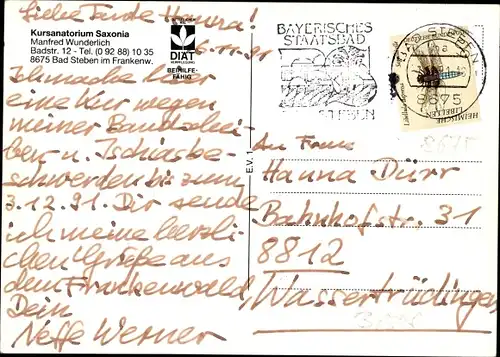 Liebe Tante Hanna!
Kursanatorium Saxonia
Manfred Wunderlich
Badstr. 12 - Tel. (0 92 88) 10 35
8675 Bad Steben im Frankenw.
DIÄT
VERPFLEGUNG
BEIHILFE-
FÄHIG
11. 91
Ich mache hier
eine Kur wegen
meiner Bandschei-
ben u. Ischiasbe-
schwerden bis zum
3.12.91. Dir sende
ich meine herzli-
chen Grüße aus
dem Frankenwald,
Dein
Neffe Werner
E.V. 1
BAYERISCHES
STAATSBAD
STEBEN
BAD STEBEN
8675
HEIMISCHE
LIBELLEN
8675
An Frau
Hanna Dürr
Bahnhofstr. 31
8812
Wassertrüdingen